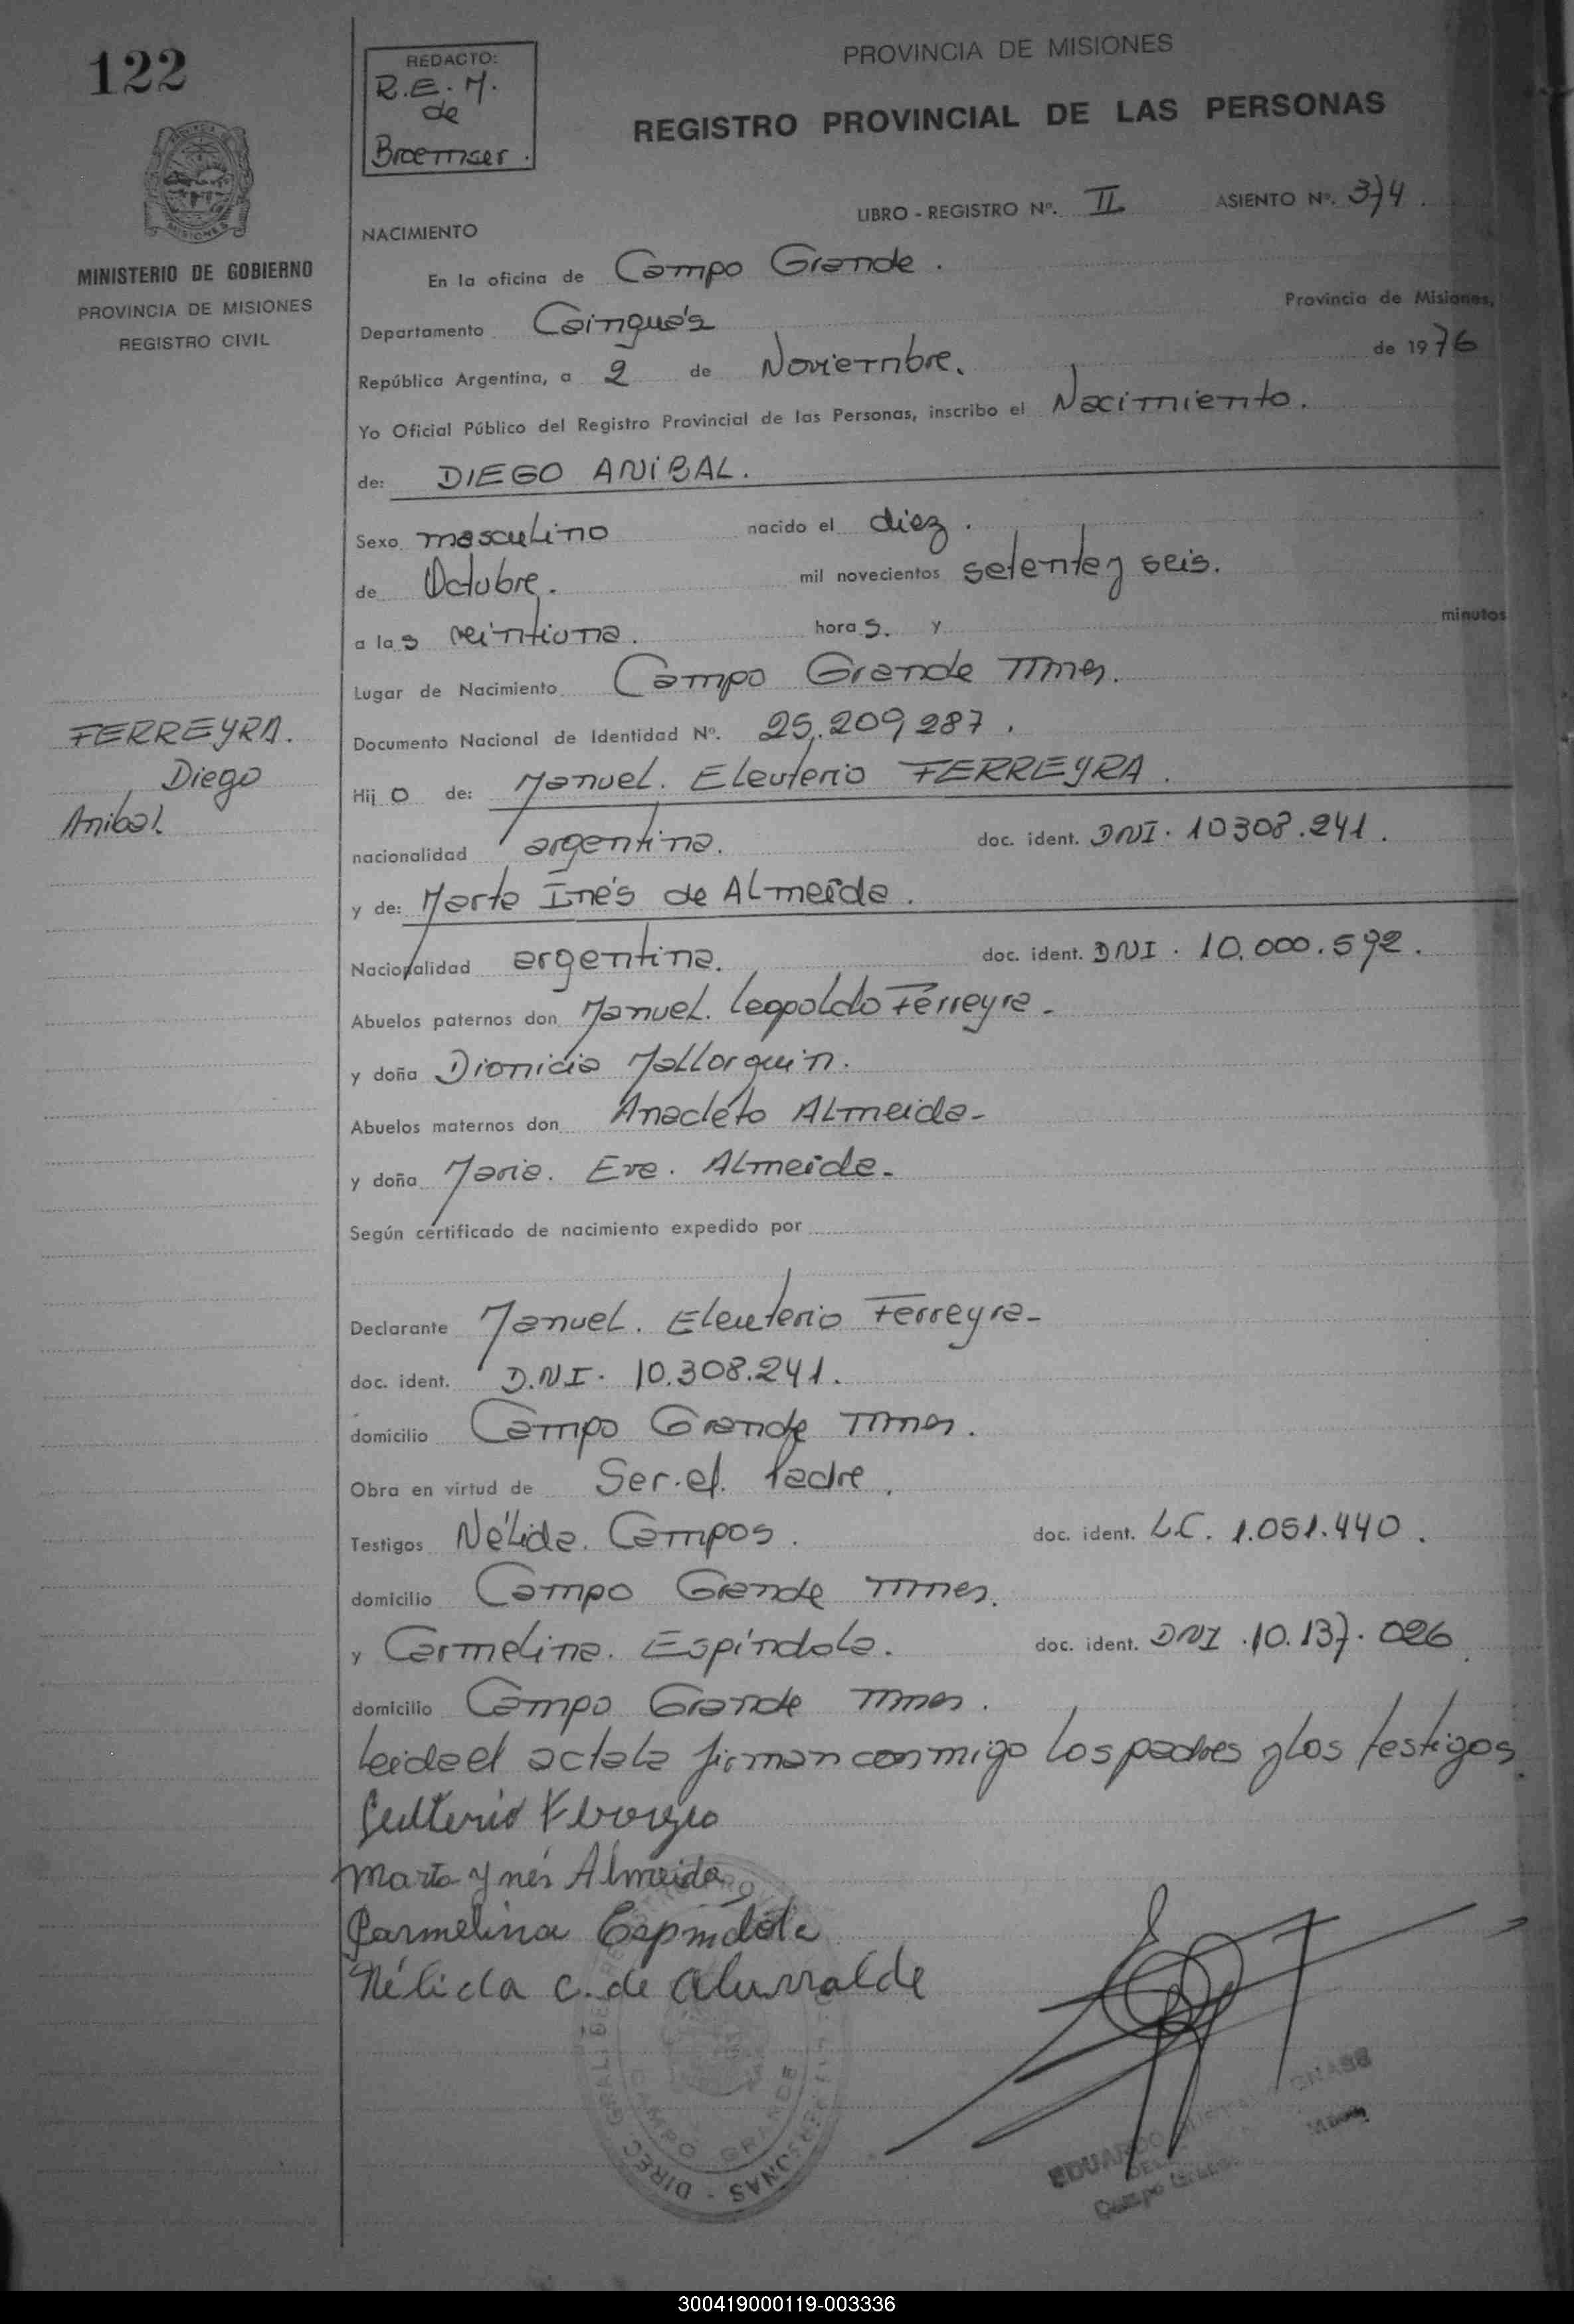 122
MINISTERIO DE GOBIERNO
PROVINCIA DE MISIONES
REGISTRO CIVIL
FERREYRA.
Diego
Anibal.
REDACTO:
R.E.M.
de
Broemser.
PROVINCIA DE MISIONES
REGISTRO PROVINCIAL DE LAS PERSONAS
LIBRO - REGISTRO Nº. II ASIENTO Nº. 374.
NACIMIENTO
En la oficina de Campo Grande.
Provincia de Misiones,
Departamento Cainguás
República Argentina, a 2 de Noviembre. de 1976
Yo Oficial Público del Registro Provincial de las Personas, inscribo el Nacimiento.
de: DIEGO ANIBAL.
Sexo masculino nacido el diez.
de Octubre. mil novecientos setentey seis.
a las veintiuna. horas. y minutos
Lugar de Nacimiento Campo Grande Mnes.
Documento Nacional de Identidad Nº. 25.209,287.
Hijo de: Manuel. Eleuterio FERREYRA.
nacionalidad argentina. doc. ident. DNI. 10308.241.
y de: Marta Inés de Almeida.
Nacionalidad argentina. doc. ident. DNI. 10.000.592.
Abuelos paternos don Manuel. Leopoldo Ferreyra-
y doña Dionicia Mallorquin.
Abuelos maternos don Anacleto Almeida-
y doña Maria. Eva. Almeida-
Según certificado de nacimiento expedido por
Declarante Manuel. Eleuterio Ferreyra-
doc. ident. D.N.I. 10.308.241.
domicilio Campo Grande Mnes.
Obra en virtud de Ser.el. Padre.
Testigos Nélida. Campos. doc. ident. L.C. 1.051.440.
domicilio Campo Grande Mnes.
y Carmelina. Espíndola. doc. ident. DNI .10.137.026
domicilio Campo Grande Mnes.
Leida el acta la firman conmigo los padres y los testigos.
Marta Ynés Almeida
Carmelina Espindola
Nélida C. de Alurralde
DIREC. GRAL. DE PERSONAS
CAMPO GRANDE
EDUARDO
Campo Grande
300419000119-003336